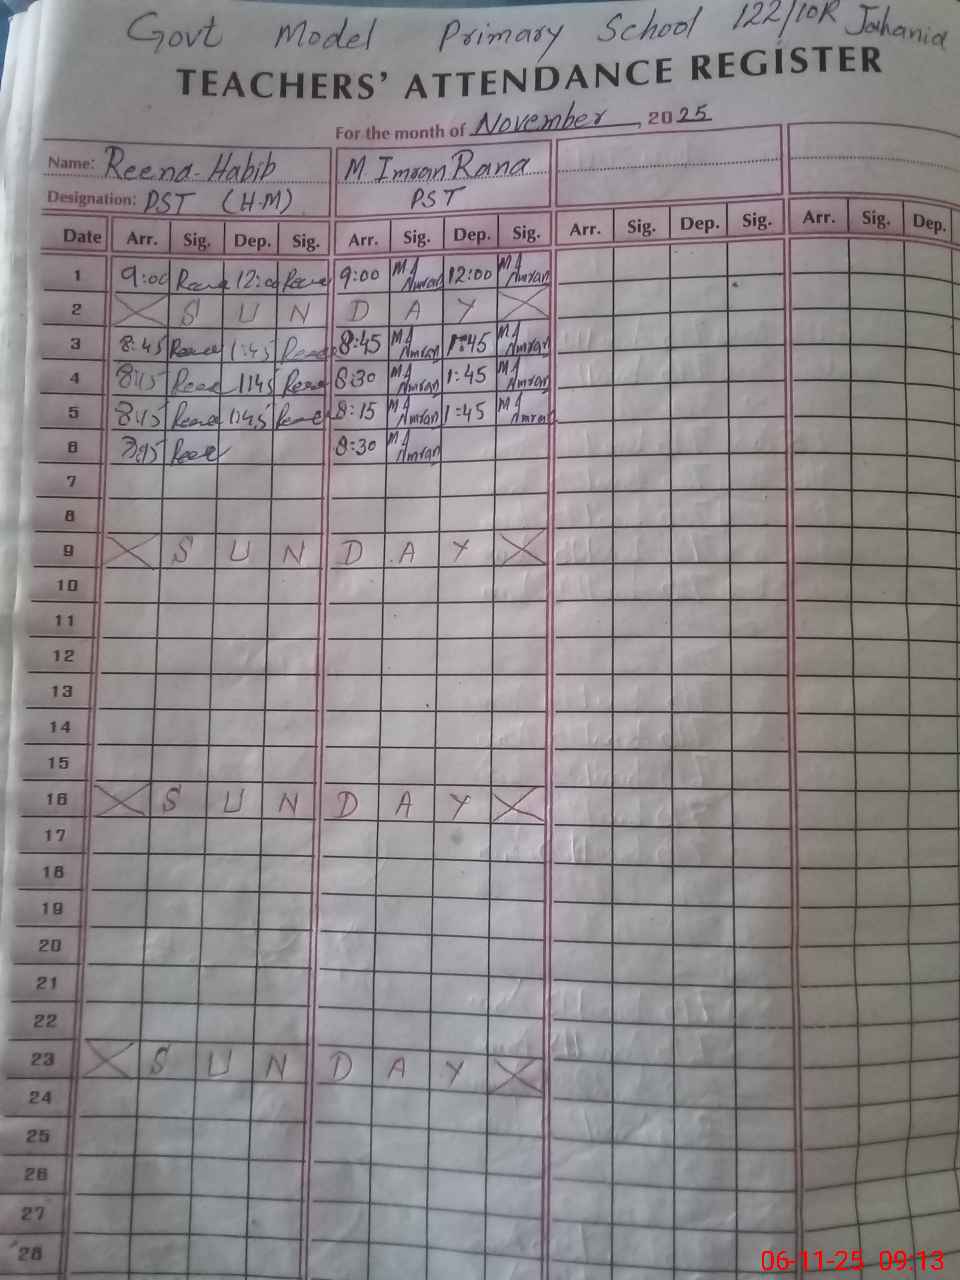 Govt Model Primary School 122/10R Jahania
TEACHERS' ATTENDANCE REGISTER
For the month of November, 2025
Name: Reena Habib M Imran Rana
Designation: PST (H.M) PST
Date Arr. Sig. Dep. Sig. Arr. Sig. Dep. Sig. Arr. Sig. Dep. Sig. Arr. Sig. Dep.
1 9:00 12:00 9:00 12:00
2 S U N D A Y
3 8:45 1:45 8:45 1:45
4 8:15 1:45 8:30 1:45
5 8:15 1:45 8:15 1:45
6 8:30
7
8
9 S U N D A Y
10
11
12
13
14
15
16 S U N D A Y
17
18
19
20
21
22
23 S U N D A Y
24
25
26
27
28
06-11-25 09:13